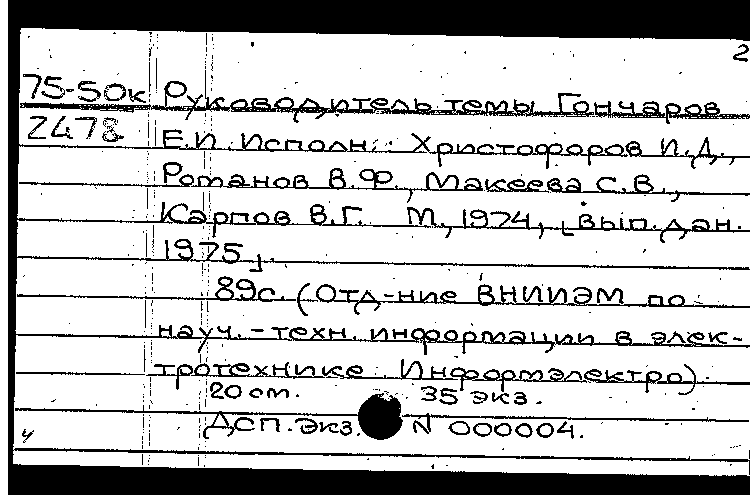 2
75-50к Руководитель темы Гончаров
2478 Е.И. Исполн.: Христофоров И.Д.,
Романов В.Ф., Макеева С.В.,
Карпов В.Г. М., 1974, [вып. дан.
1975].
89с. (Отд-ние ВНИИЭМ по
науч.-техн. информации в элек-
тротехнике Информэлектро).
20 см. 35 экз.
ДСП. Экз. N 000004.